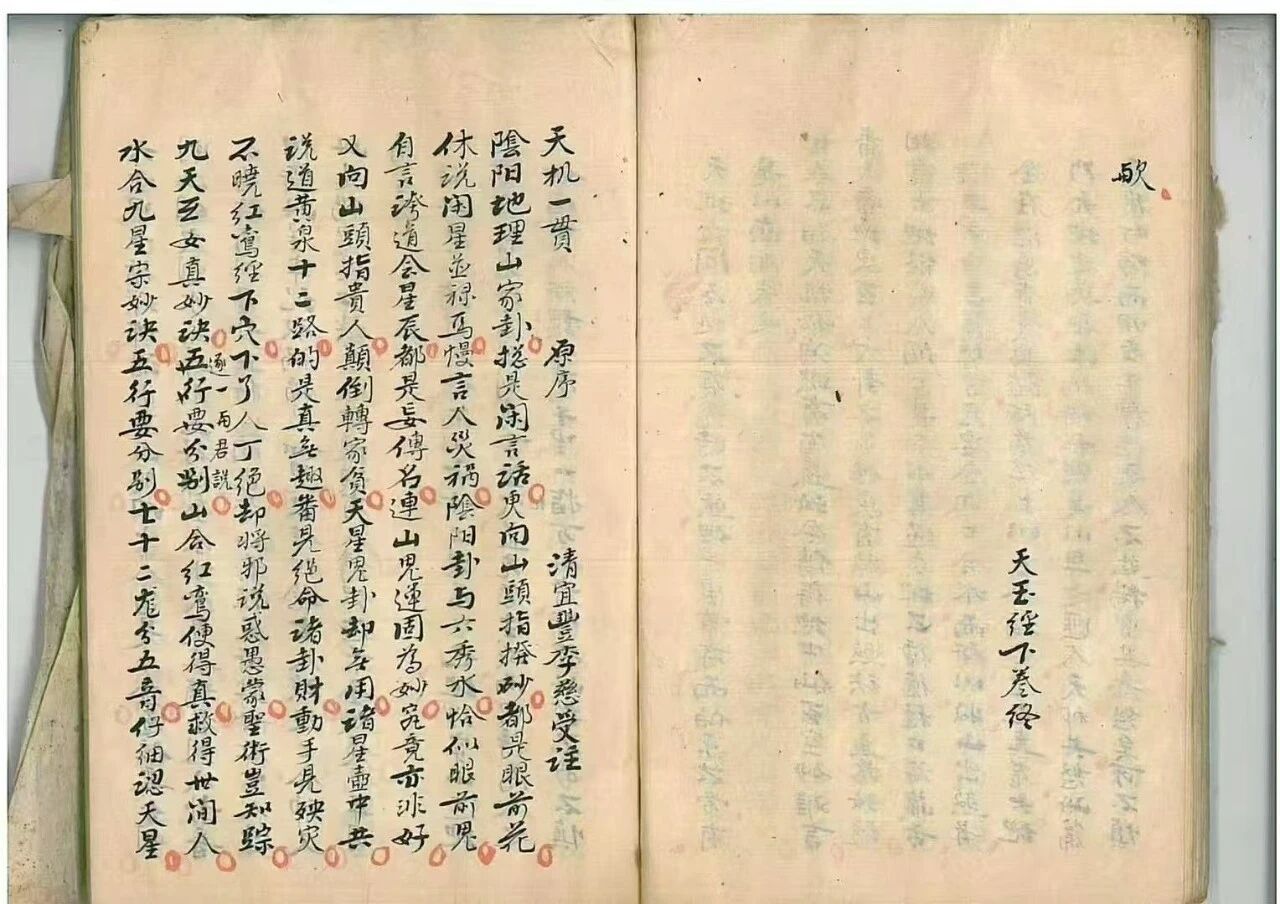 欤
天玉經下卷终
天机一貫 原序 清宜豐李慈受註
陰陽地理山家卦捴是闲言話更向山頭指撥砂都是眼前花
休說闲星並禄馬慢言人災禍陰阳卦与六秀水恰似眼前鬼
自言誇道会星辰都是妄傳名連山鬼運固為妙究竟亦非好
又向山頭指貴人顛倒轉家貧天星鬼卦却无用诸星壷中共
说道黄泉十二路的是真无趣番見绝命诸卦財動手見殃灾
不曉红鸾經下穴下了人丁绝却將邪说惑愚蒙聖術豈知踪
九天玄女真妙诀逐一為君說五行要分别山合红鸾便得真救得世间人
水合九星宗妙诀五行要分别七十二龙分五音仔细認天星